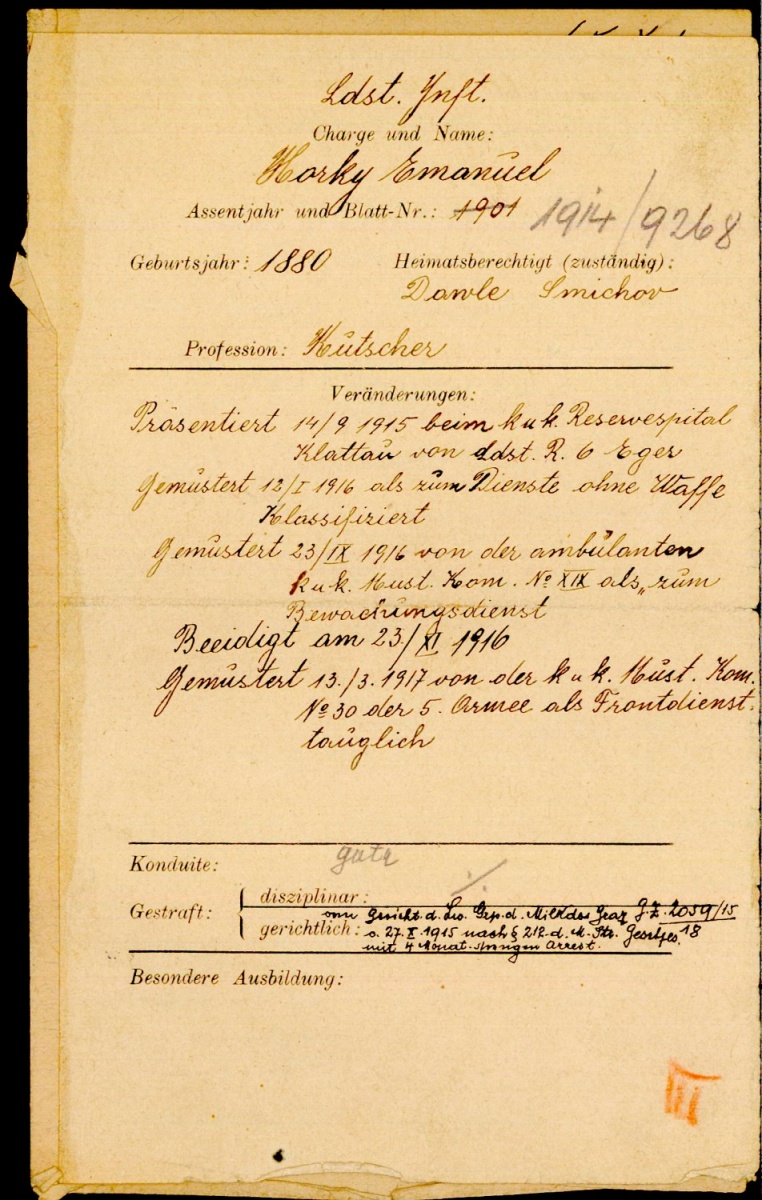 Ldst. Inft.
Charge und Name:
Horky Emanuel
Assentjahr und Blatt-Nr.: 1901 1914/9268
Geburtsjahr: 1880 Heimatsberechtigt (zuständig):
Dawle Smichov
Profession: Kutscher
Veränderungen:
Präsentiert 14/9 1915 beim k u k. Reservespital
Klattau von Ldst. R. 6 Eger
Gemustert 12/I 1916 als zum Dienste ohne Waffe
Klassifiziert
Gemustert 23/IX 1916 von der ambulanten
k u k. Must. Kom. No XIX als „zum
Bewachungsdienst
Beeidigt am 23./XI 1916
Gemustert 13./3. 1917 von der k u k. Must. Kom.
No 30 der 5. Armee als Frontdienst-
tauglich
Konduite: gute
Gestraft:
disziplinar: ·/.
gerichtlich: vom Gericht d. d. Mil.Kdos Graz G.Z. 2059/15
v. 27. X. 1915 nach § 212. d. M. Str. 18
mit 4 Monat. strengen Arrest.
Besondere Ausbildung:
III